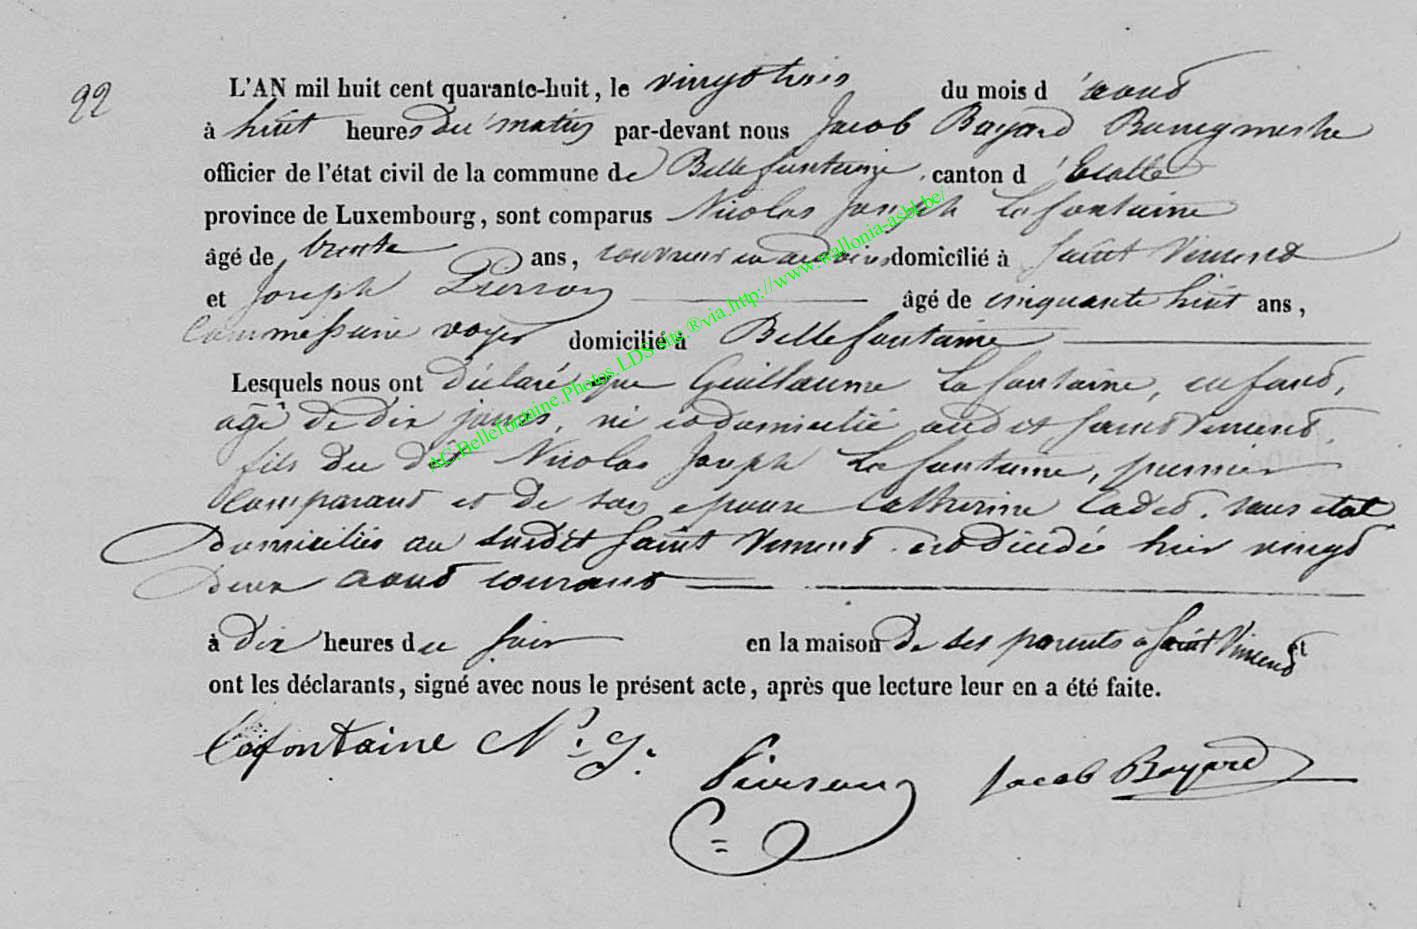 22
L'AN mil huit cent quarante-huit, le vingt trois du mois d'aout
à huit heures du matin par-devant nous Jacob Bayard Bourgmestre
officier de l'état civil de la commune de Bellefontaine, canton d'Etalle
province de Luxembourg, sont comparus Nicolas Joseph Lafontaine
âgé de trente ans, couvreur en ardoises domicilié à Saint Vincent
et Joseph Pierson âgé de cinquante huit ans,
Commissaire voyer domicilié à Bellefontaine
Lesquels nous ont déclaré que Guillaume Lafontaine, enfant,
agé de dix jours, né et domicilié audit Saint Vincent,
fils du dit Nicolas Joseph Lafontaine, premier
Comparant et de son epouse Catherine Cadet, sans etat
Domiciliés au susdit Saint Vincent est décédé hier vingt
Deux aout courant
à dix heures du soir en la maison de ses parents a Saint Vincent
ont les déclarants, signé avec nous le présent acte, après que lecture leur en a été faite.
Lafontaine N. J. Pierson Jacob Bayard
AC.Bellefontaine.Photos.LDS site.®via.http://www.wallonia-asbl.be/